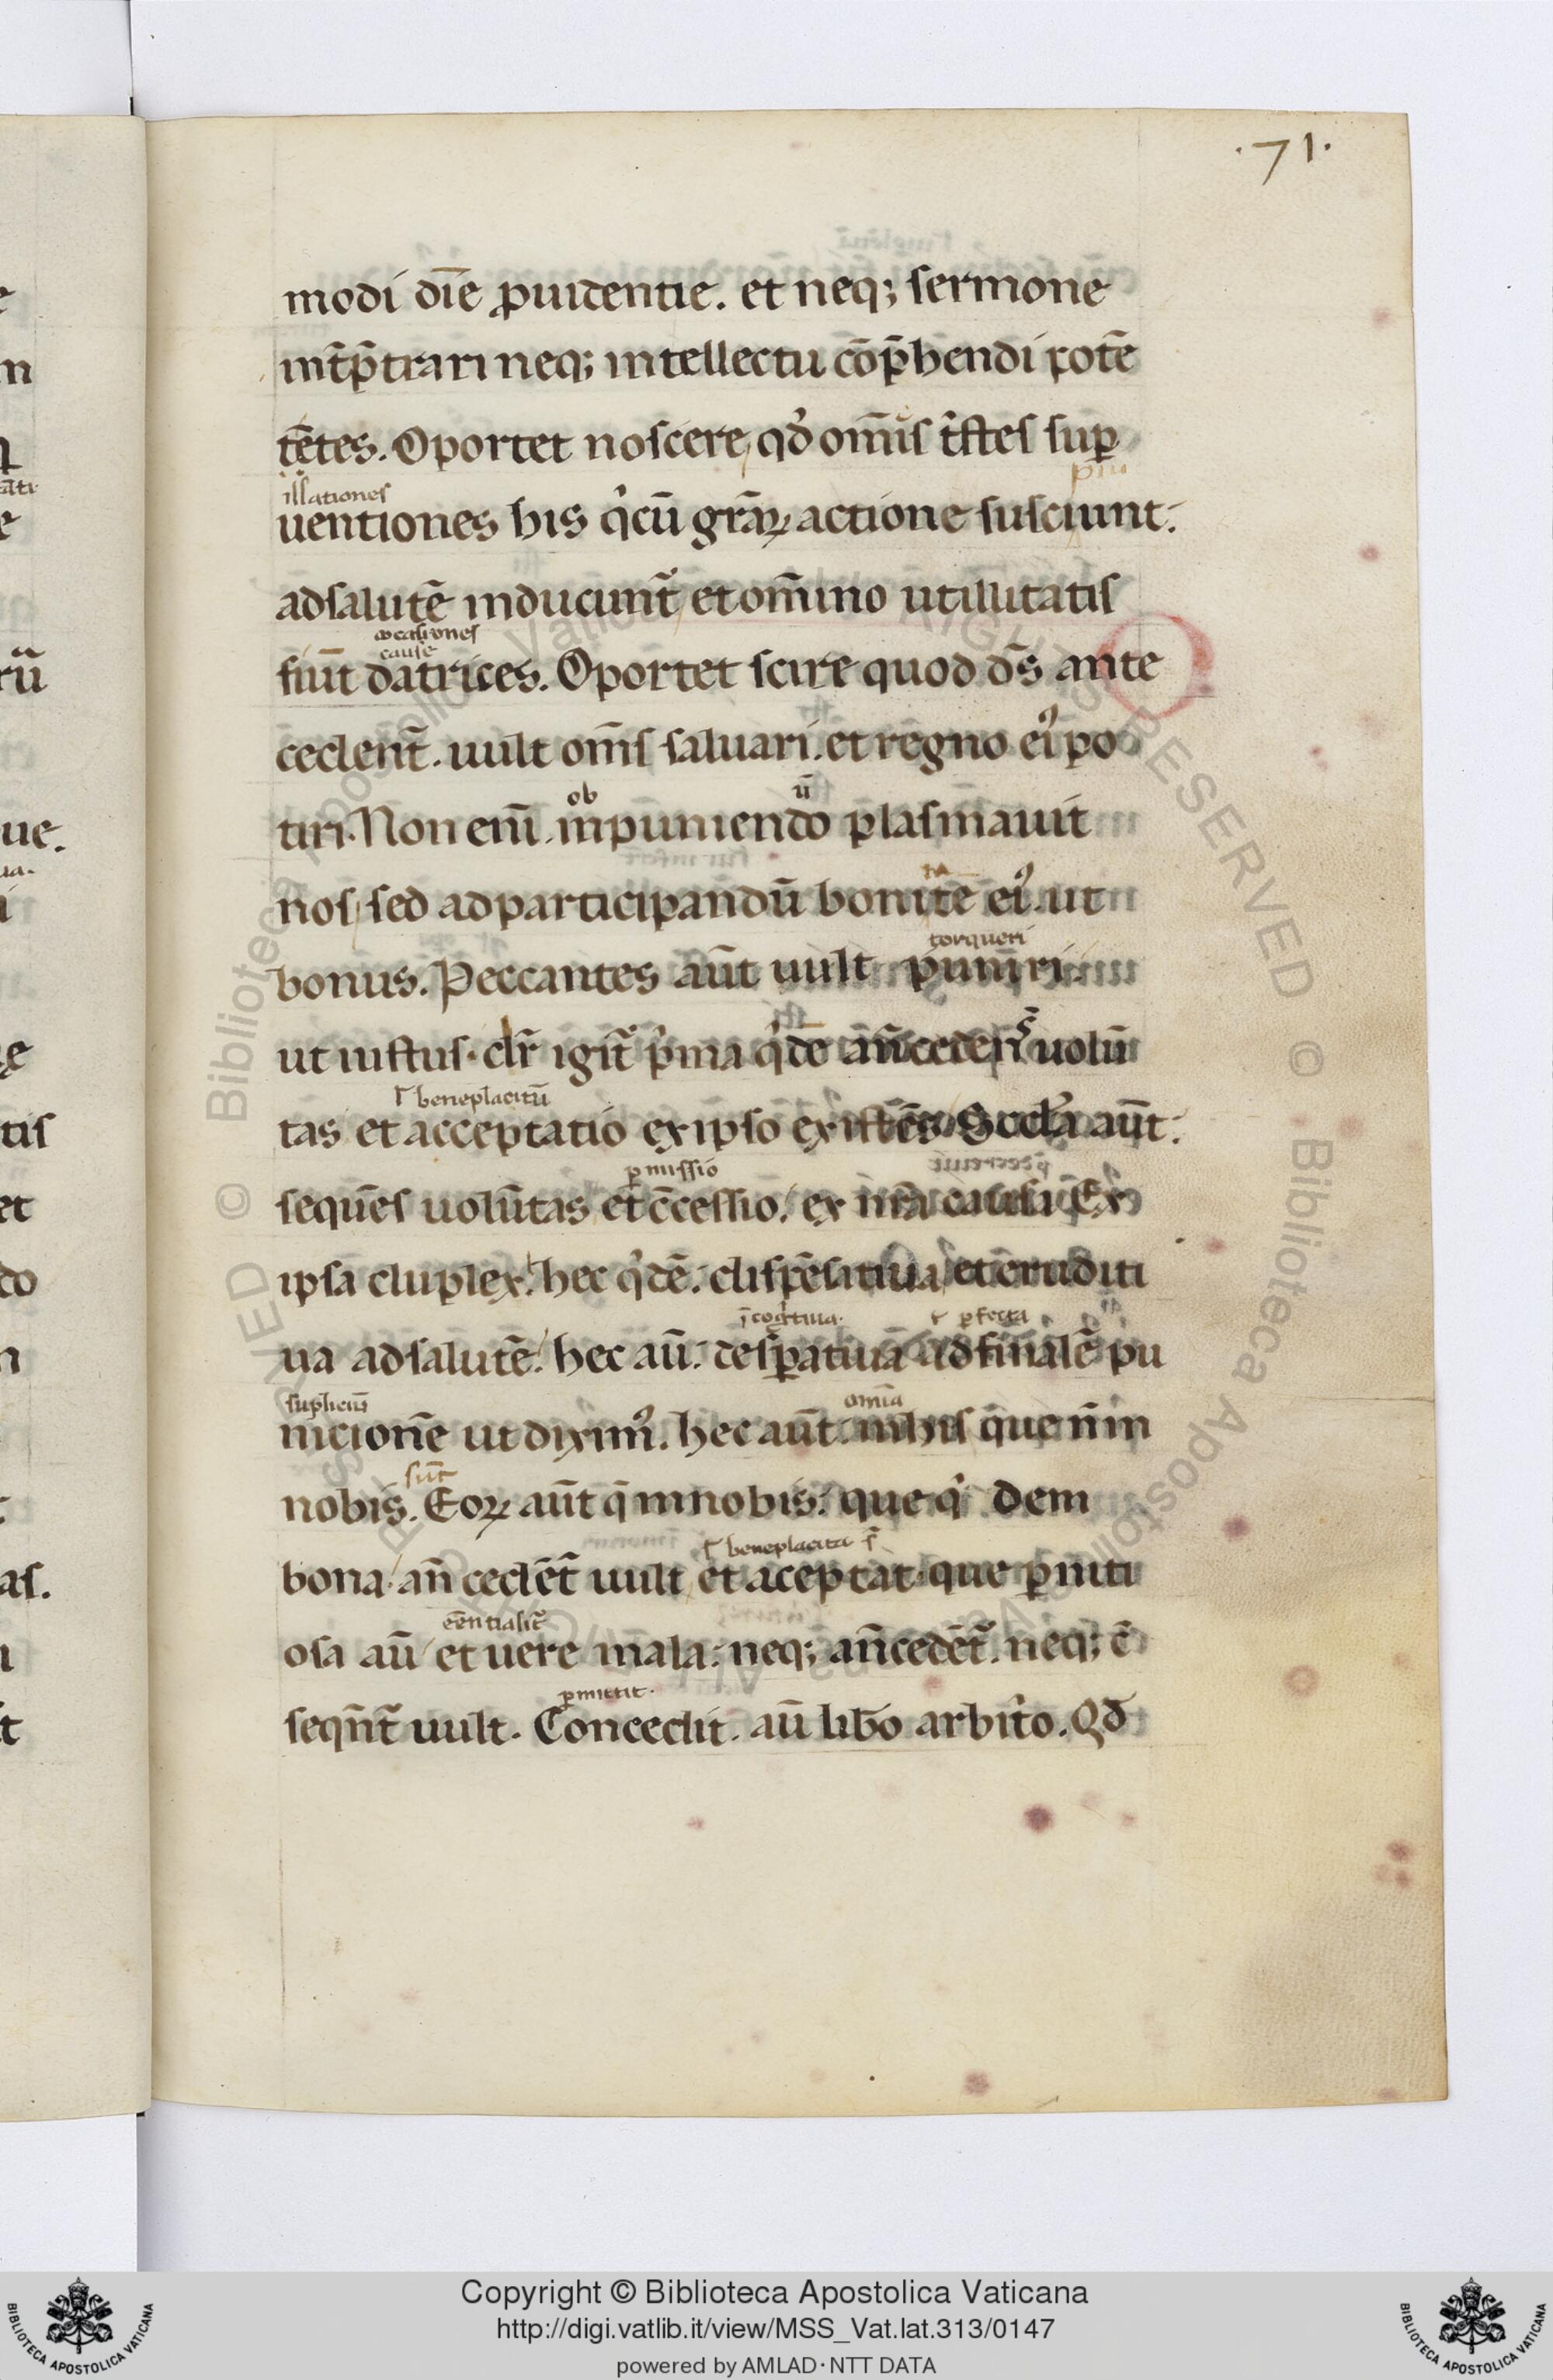 .71.
modi dı̄e ꝓuidentie. et neq; sermone
int̄p̄trari neq; intellectu cōp̄hendi potē
tētes. Oportet noscere qđ om̄is t̓stes suꝑ
illationes
uentiones his q̓cū grāꝝ actione susciunt.
adsalutē inducunt̄ et om̄ino utillitatis
occasiones
cause
fiūt datrices. Oportet scire quod d̄s ante
cedent̄. uult om̄s saluari. et regno ei᾽ po
ob ū
tiri. Non enı̄ inpuniendo plasmauit
nos sed adparticipandū bonitē ei᾽. ut
torqueri
bonus. Peccantes aūt uult puniri
ut iustus. dr̄ igit̄ p̓ma q̓dē añcedens uolū
beneplacitū
tas et acceptatio ex ipso existēs. Scd̄a aūt.
ꝑmissio
sequēs uolūtas et c̄cessio. ex nr̄a causa. Ex
ipsa duplex. hec q̓dē. dispēsatiua et erudi ti
ꝑfecta
ua adsalutē. hec aū. desꝑatiua adfinalē pu
supliciū omı̄a
nicionē ut dixim᾽. hec aūt. inhis que n̄ in
sūt
nobis. Eoꝝ aūt q̄ innobis. que q̓ dem
beneplacita
bona añ cedēt̄ uult et aceptat. que ꝑniti
eēntialit̄
osa aū et uere mala. neq; añcedēt̄. neq; c̄
ꝑmittit.
seqn̄t̄ uult. Concedit. aū libo arbit̓o. Qđ
Copyright © Biblioteca Apostolica Vaticana
http://digi.vatlib.it/view/MSS_Vat.lat.313/0147
powered by AMLAD·NTT DATA
BIBLIOTECA APOSTOLICA VATICANA
BIBLIOTECA APOSTOLICA VATICANA